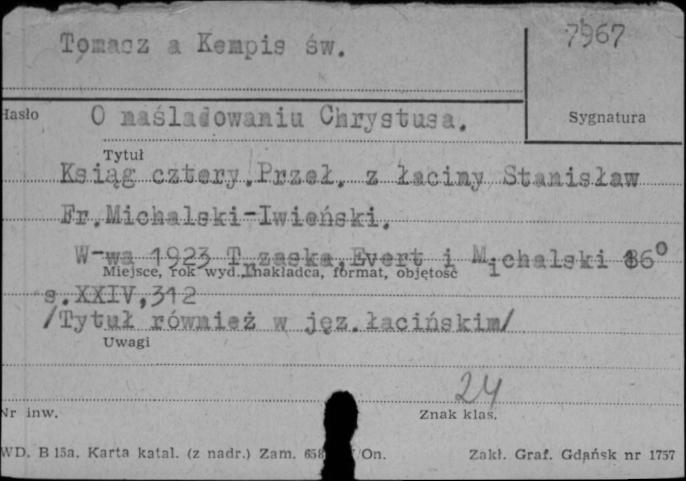 Tomasz a Kempis św.
7967
Hasło
O naśladowaniu Chrystusa.
Sygnatura
Tytuł
Ksiąg cztery. Przeł. z łaciny Stanisław
Fr. Michalski-Iwieński.
W-wa 1923 Trzaska, Evert i Michalski 16°
Miejsce, rok wyd., nakładca, format, objętość
s. XXIV, 312
/Tytuł również w jęz. łacińskim/
Uwagi
24
Nr inw.
Znak klas.
WD. B 15a. Karta katal. (z nadr.) Zam. 658 /On.
Zakł. Graf. Gdańsk nr 1757